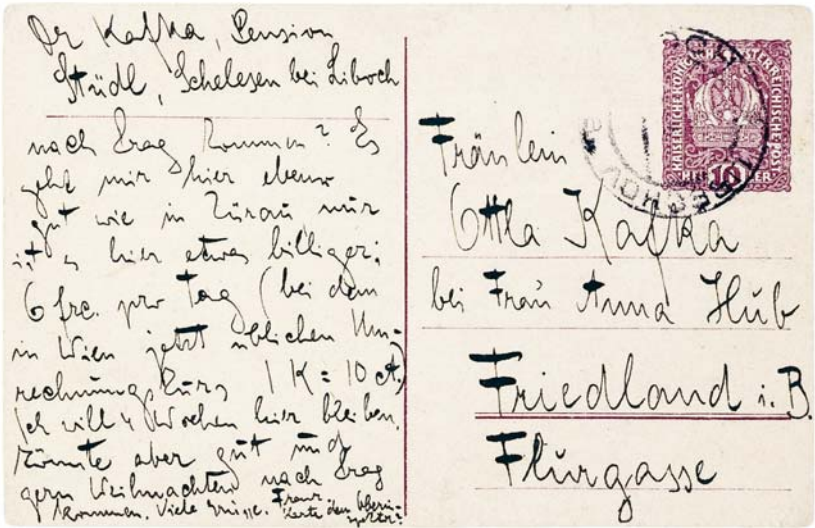 Dr Kafka, Pension
Stüdl, Schelesen bei Liboch
nach Prag kommen? Es
geht mir hier ebenso
gut wie in Zürau, nur
ist es hier etwas billiger;
6 frc. pro Tag (bei dem
in Wien jetzt üblichen Um-
rechnungskurs 1 K = 10 ct.)
Ich will 4 Wochen hier bleiben,
könnte aber gut und
gern Weihnachten nach Prag
kommen. Viele Grüsse. Franz
Karte dem Oberin-
spektor?
KAISERLICHE KÖNIGLICHE ÖSTERREICHISCHE POST
10 HELLER
LIBĚCHOV
Fräulein
Ottla Kafka
bei Frau Anna Hub
Friedland i. B.
Flurgasse